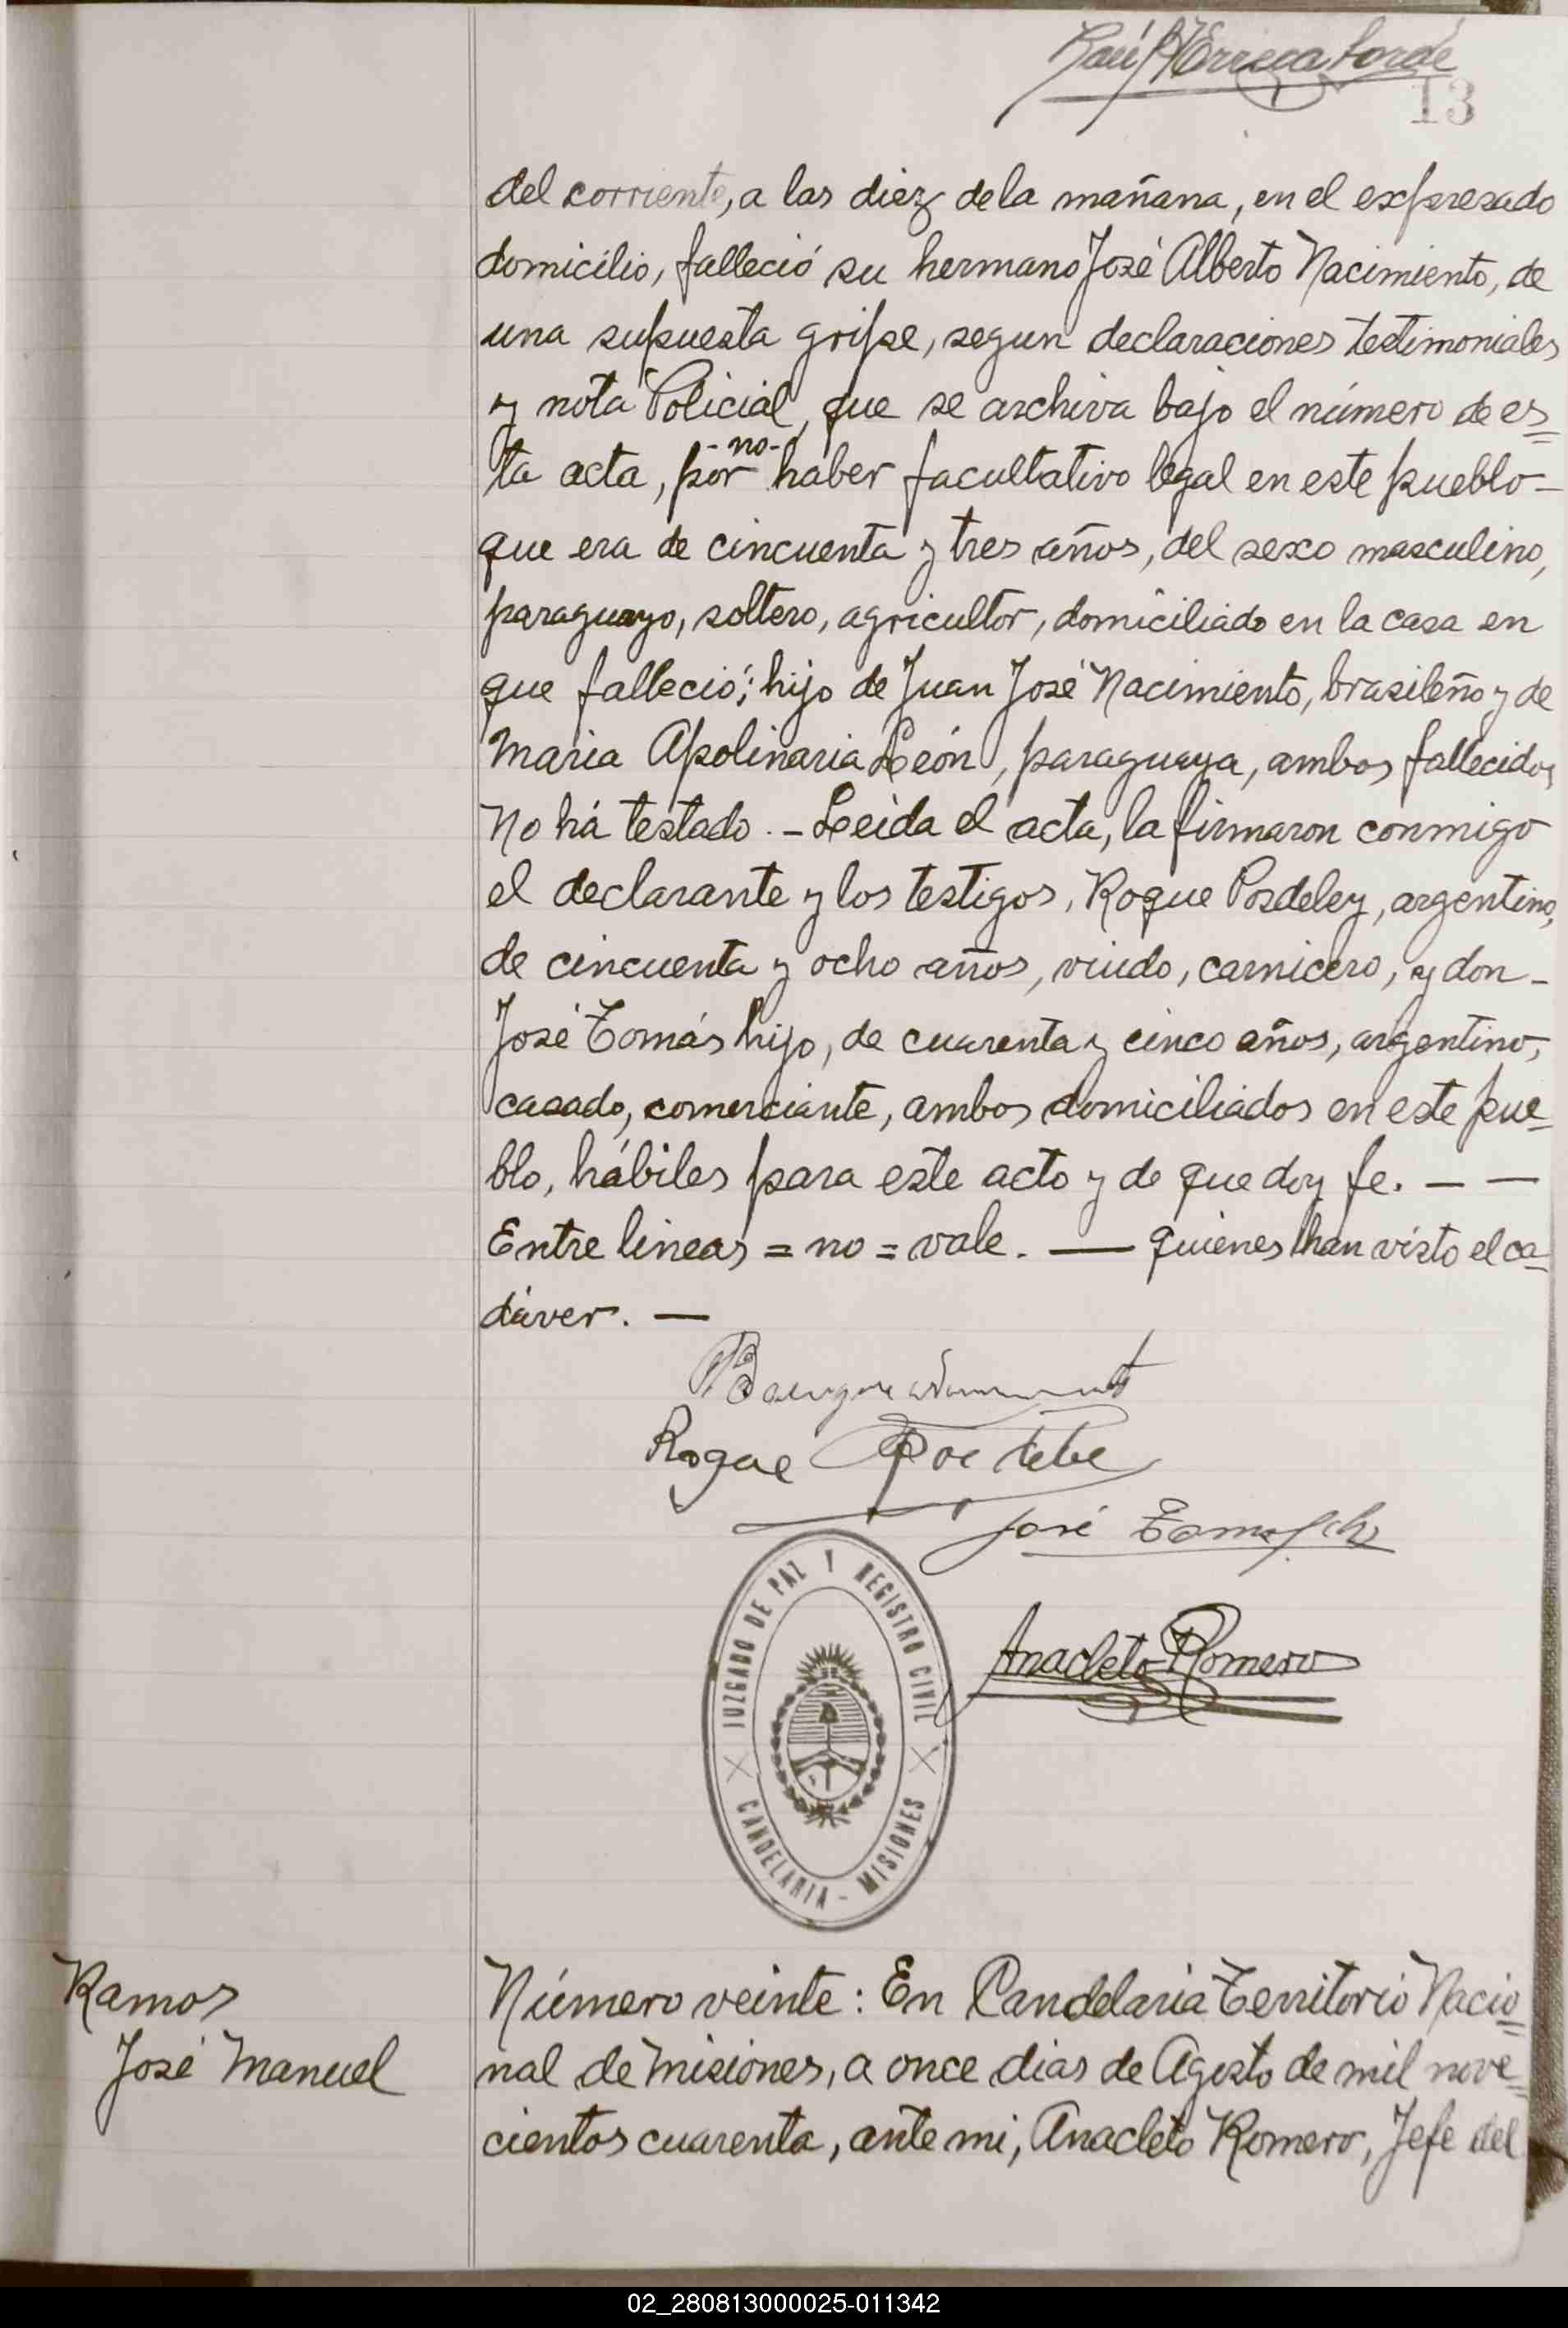 13
del corriente, a las diez de la mañana, en el expresado
domicilio, falleció su hermano José Alberto Nacimiento, de
una supuesta gripe, segun declaraciones testimoniales
y nota Policial, que se archiva bajo el número de es=
ta acta, por -no- haber facultativo legal en este pueblo-
que era de cincuenta y tres años, del sexo masculino,
paraguayo, soltero, agricultor, domiciliado en la casa en
que falleció; hijo de Juan José Nacimiento, brasileño y de
Maria Apolinaria León, paraguaya, ambos fallecidos
No há testado. - Leida el acta, la firmaron conmigo
el declarante y los testigos, Roque Posdeley, argentino,
de cincuenta y ocho años, viudo, carnicero, y don-
José Tomás hijo, de cuarenta y cinco años, argentino,
casado, comerciante, ambos domiciliados en este pue=
blo, hábiles para este acto y de que doy fe. — —
Entre lineas = no = vale. — quienes han visto el ca=
dáver. —
Roque
José
JUZGADO DE PAZ Y REGISTRO CIVIL
CANDELARIA - MISIONES
Anacleto Romero
Ramos
José Manuel
Número veinte: En Candelaria Territorio Nacio=
nal de Misiones, a once dias de Agosto de mil nove=
cientos cuarenta, ante mi, Anacleto Romero, Jefe del
02_280813000025-011342